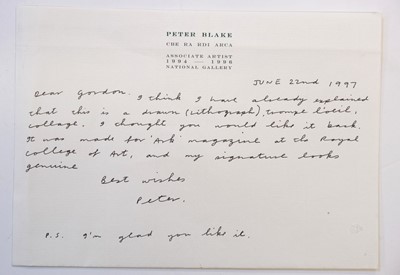 PETER BLAKE
CBE RA RDI ARCA
ASSOCIATE ARTIST
1994 — 1996
NATIONAL GALLERY
JUNE 22nd 1997
Dear Gordon. I think I have already explained
that this is a drawn (Lithograph), trompe l'œil,
collage, I thought you would like it back.
It was made for 'Ark' magazine at the Royal
College of Art, and my signature looks
genuine
Best wishes
Peter.
P.S. I'm glad you like it.